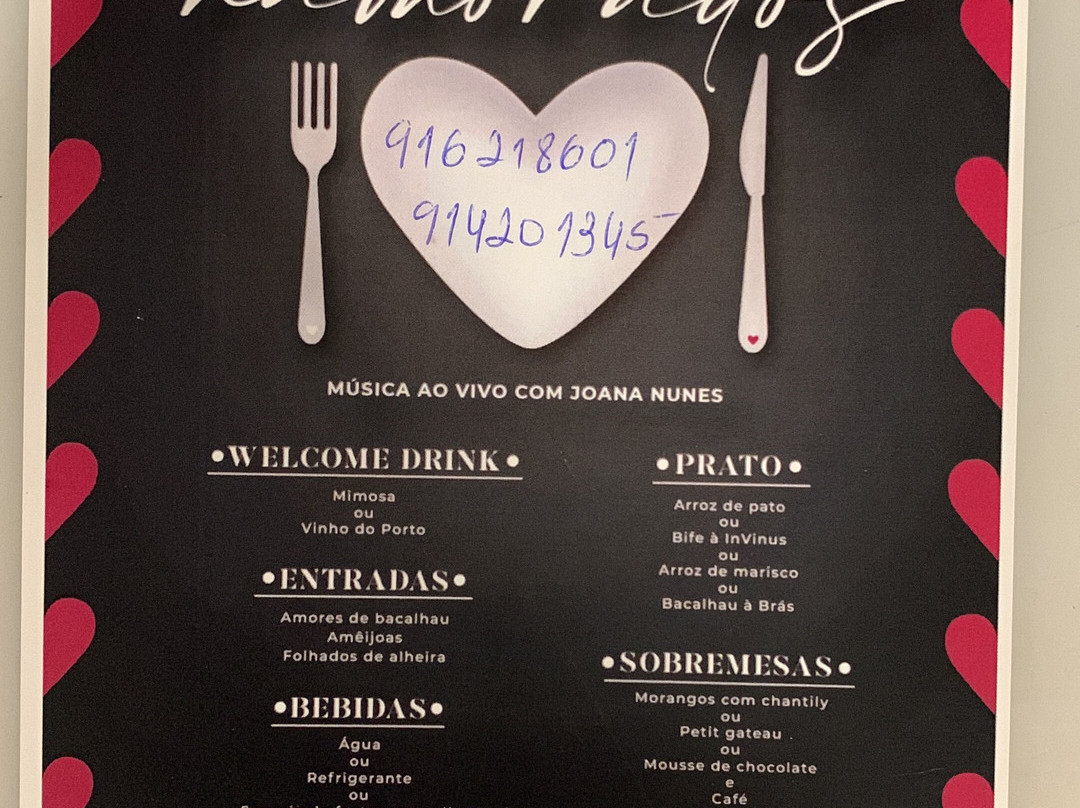 916218601
914201345
MÚSICA AO VIVO COM JOANA NUNES
•WELCOME DRINK•
Mimosa
ou
Vinho do Porto
•ENTRADAS•
Amores de bacalhau
Amêijoas
Folhados de alheira
•BEBIDAS•
Água
ou
Refrigerante
ou
•PRATO•
Arroz de pato
ou
Bife à InVinus
ou
Arroz de marisco
ou
Bacalhau à Brás
•SOBREMESAS•
Morangos com chantily
ou
Petit gateau
ou
Mousse de chocolate
e
Café